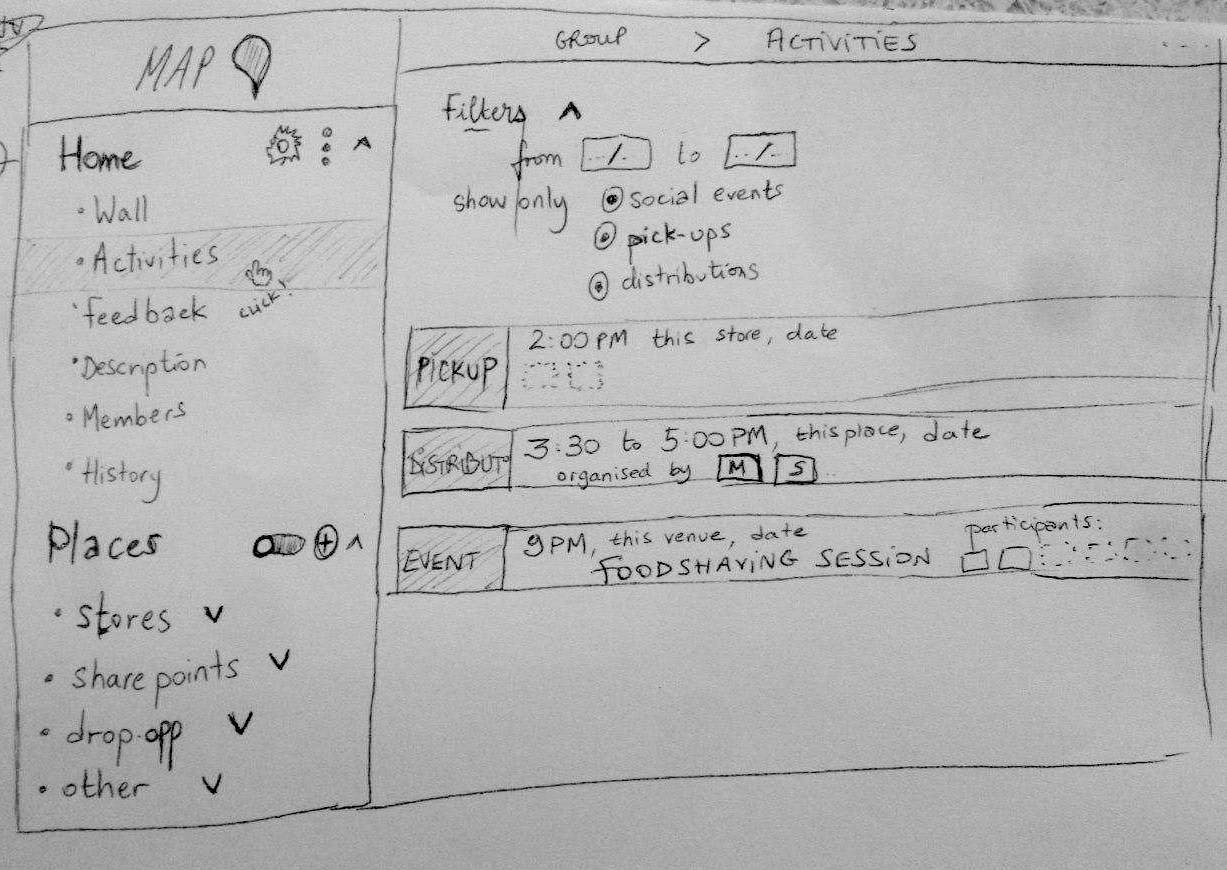 MAP
Home
Wall
Activities
click!
feedback
Description
Members
History
Places
stores
share points
drop-off
other
GROUP > ACTIVITIES ...
Filters
from ../.. to ../..
show only social events
pick-ups
distributions
PICKUP
2:00 PM this store, date
DISTRIBUT
3:30 to 5:00 PM, this place, date
organised by M S ..
EVENT
9PM, this venue, date
FOODSHAVING SESSION
participants: